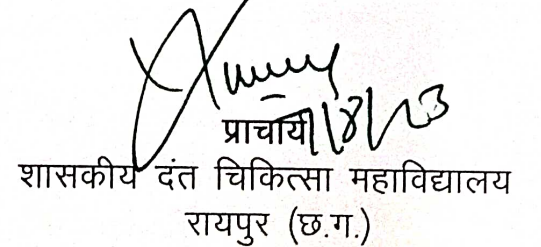 प्राचार्य
शासकीय दंत चिकित्सा महाविद्यालय
रायपुर (छ.ग.)